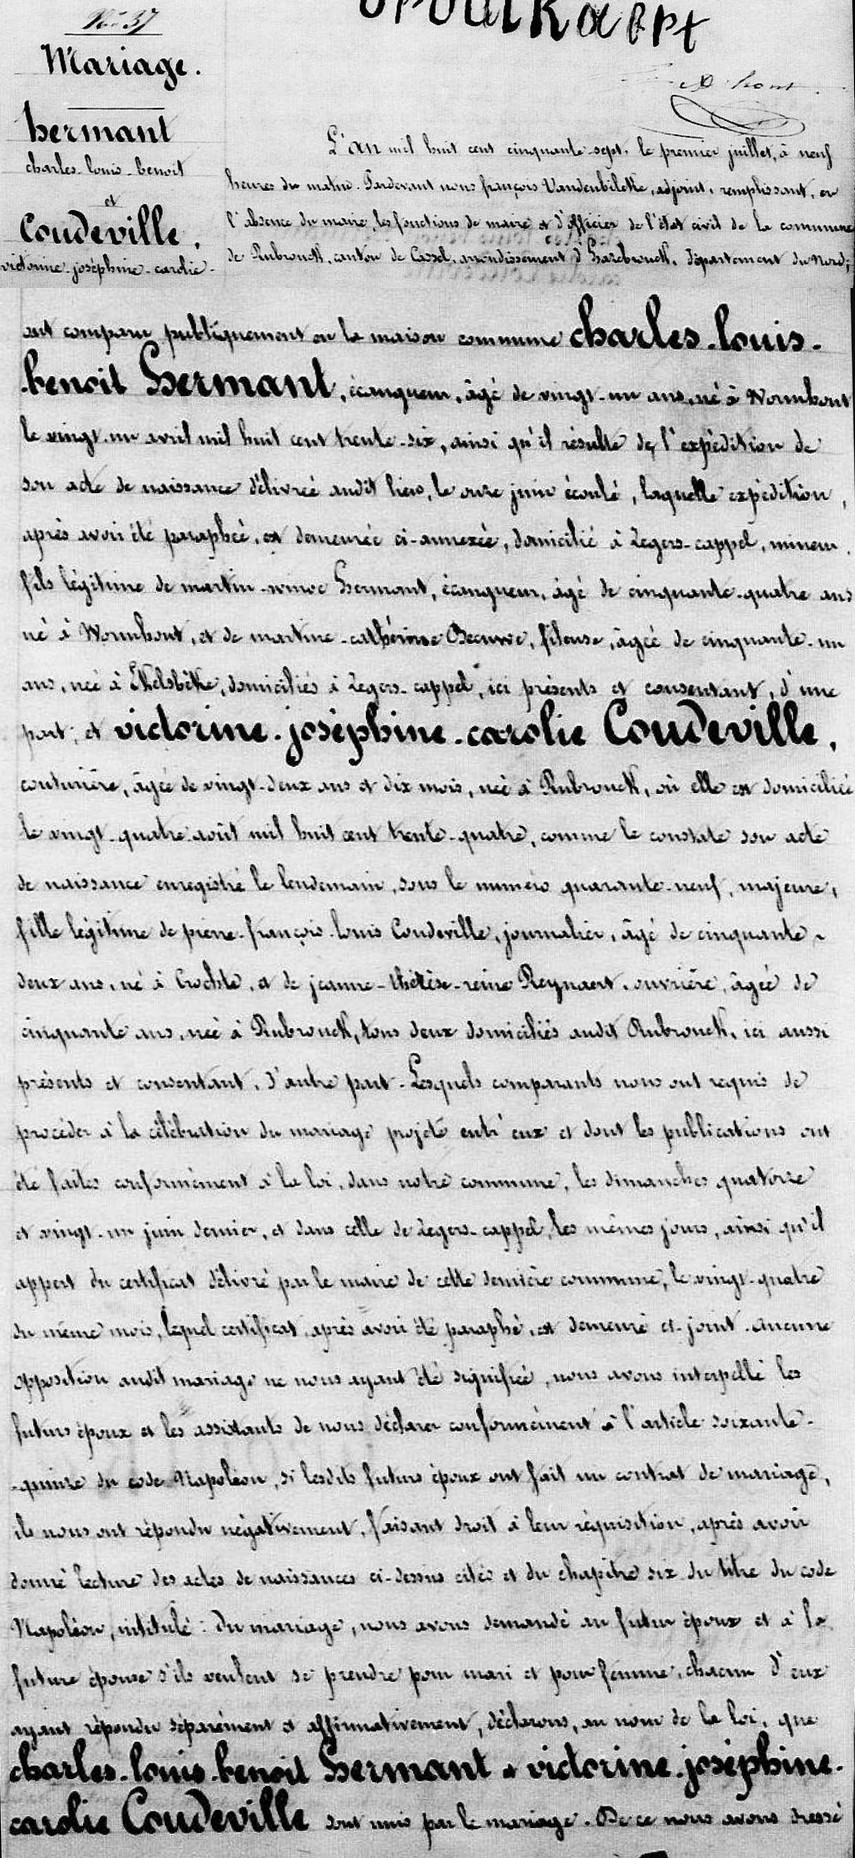 N.º 37
Mariage.
hermant
charles-louis-benoit
et
Coudeville,
victorine-joséphine-carolie.
L'an mil huit cent cinquante-sept, le premier juillet, à neuf
heures du matin. Pardevant nous françois Vandenbilcke, adjoint, remplissant, en
l'absence du maire, les fonctions de maire et d'officier de l'état civil de la commune
de Rubrouck, canton de Cassel, arrondissement d'hazebrouck, département du Nord;
ont comparu publiquement en la maison commune charles-louis-
-benoit hermant, écangueur, âgé de vingt-un ans, né à Wormhout
le vingt-un avril mil huit cent trente-six, ainsi qu'il résulte de l'expédition de
son acte de naissance délivrée audit lieu, le onze juin écoulé, laquelle expédition,
après avoir été paraphée, est demeurée ci-annexée, domicilié à Zegers-cappel, mineur,
fils légitime de martin-winoc hermant, écangueur, âgé de cinquante-quatre ans
né à Wormhout, et de martine-cathérine Becuwe, fileuse, âgée de cinquante-un
ans, née à Ekelsbéke, domiciliés à Zegers-cappel, ici présents et consentant, d'une
part, et victorine-joséphine-carolie Coudeville,
couturière, âgée de vingt-deux ans et dix mois, née à Rubrouck, où elle est domiciliée
le vingt-quatre août mil huit cent trente-quatre, comme le constate son acte
de naissance enregistré le lendemain, sous le numéro quarante-neuf, majeure,
fille légitime de pierre-françois-louis Coudeville, journalier, âgé de cinquante-
deux ans, né à Crochte, et de jeanne-thérèse-reine Reynaert, ouvrière, âgée de
cinquante ans, née à Rubrouck, tous deux domiciliés audit Rubrouck, ici aussi
présents et consentant, d'autre part. Lesquels comparants nous ont requis de
procéder à la célébration du mariage projeté entr'eux et dont les publications ont
été faites conformément à la loi, dans notre commune, les dimanches quatorze
et vingt-un juin dernier, et dans celle de Zegers-cappel, les mêmes jours, ainsi qu'il
appert du certificat délivré par le maire de cette dernière commune, le vingt-quatre
du même mois, lequel certificat, après avoir été paraphé, est demeuré ci-joint. Aucune
opposition audit mariage ne nous ayant été signifiée, nous avons interpellé les
futurs époux et les assistants de nous déclarer conformément à l'article soixante-
-quinze du code Napoléon, si lesdits futurs époux ont fait un contrat de mariage,
ils nous ont répondu négativement, faisant droit à leur réquisition, après avoir
donné lecture des actes de naissances ci-dessus cités et du chapitre six du titre du code
Napoléon, intitulé: Du mariage, nous avons demandé au futur époux et à la
future épouse s'ils veulent se prendre pour mari et pour femme, chacun d'eux
ayant répondu séparément et affirmativement, déclarons, au nom de la loi, que
charles-louis-benoit hermant et victorine-joséphine-
carolie Coudeville sont unis par le mariage. De ce nous avons dressé